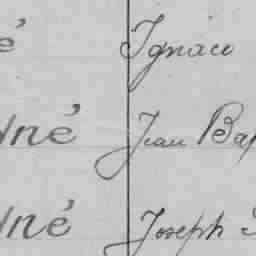 é Ignace
né Jean Bap
né Joseph